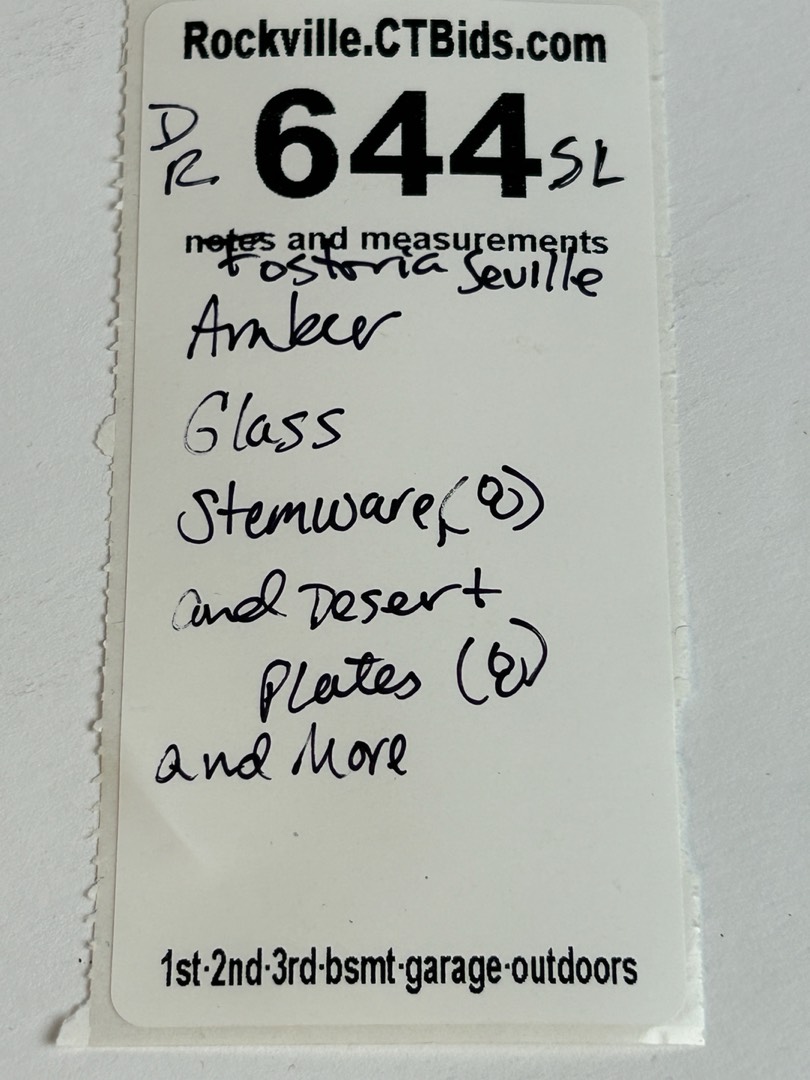 Rockville.CTBids.com
D
R 644 SL
notes and measurements
Fostoria Seville
Amber
Glass
Stemware, (8)
and Desert
Plates (8)
and More
1st·2nd·3rd·bsmt·garage·outdoors